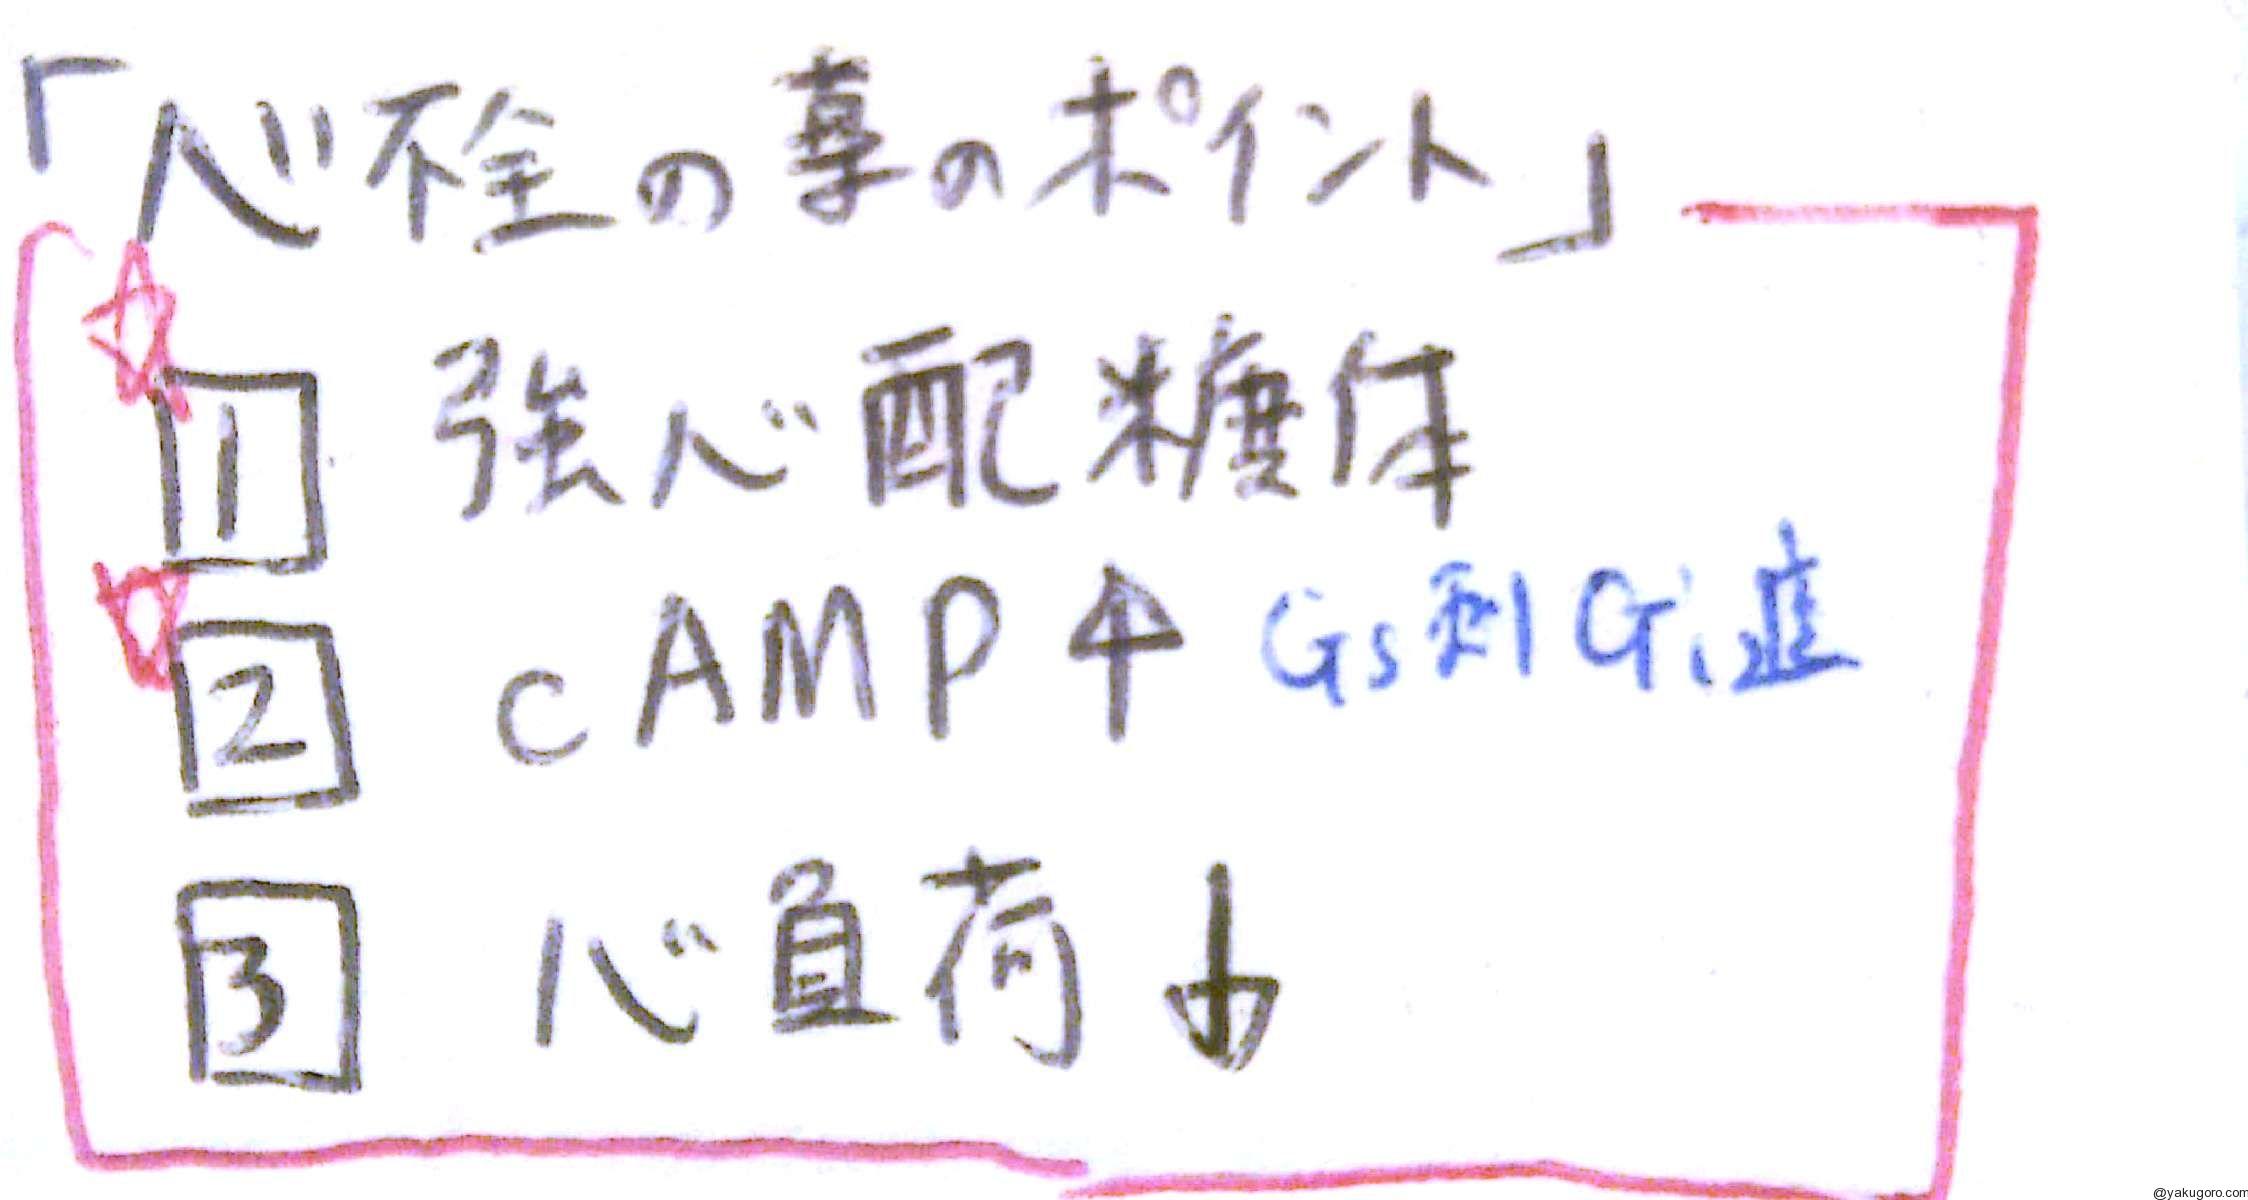 「心不全の薬のポイント」
1 強心配糖体
2 cAMP↑ Gs到 Gi進
3 心負荷↓
@yakugoro.com